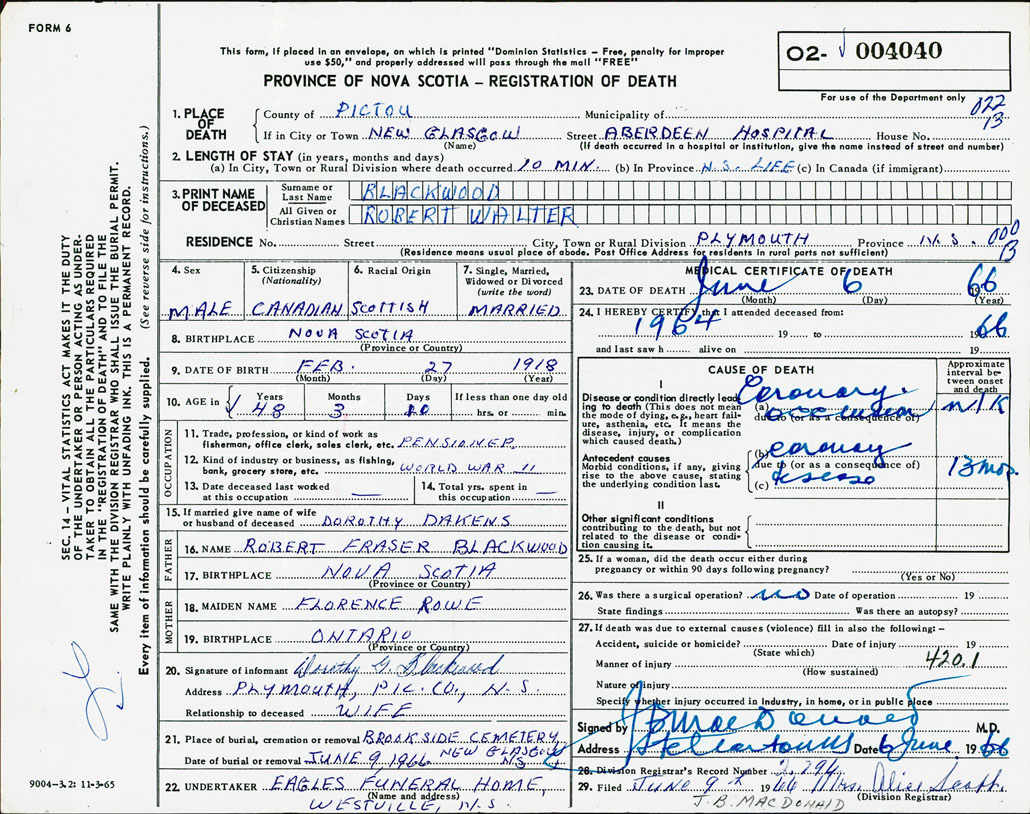 FORM 6
This form, if placed in an envelope, on which is printed "Dominion Statistics – Free, penalty for improper
use $50," and properly addressed will pass through the mail "FREE"
02- 004040
PROVINCE OF NOVA SCOTIA – REGISTRATION OF DEATH
For use of the Department only
022
13
1. PLACE OF DEATH
County of PICTOU Municipality of
If in City or Town NEW GLASGOW Street ABERDEEN HOSPITAL House No.
(Name) (If death occurred in a hospital or institution, give the name instead of street and number)
2. LENGTH OF STAY (in years, months and days)
(a) In City, Town or Rural Division where death occurred 10 MIN. (b) In Province N.S. LIFE (c) In Canada (if immigrant)
3. PRINT NAME OF DECEASED
Surname or Last Name BLACKWOOD
All Given or Christian Names ROBERT WALTER
RESIDENCE No. Street City, Town or Rural Division PLYMOUTH Province N.S. 000
13
(Residence means usual place of abode. Post Office Address for residents in rural parts not sufficient)
4. Sex
MALE
5. Citizenship
(Nationality)
CANADIAN
6. Racial Origin
SCOTTISH
7. Single, Married,
Widowed or Divorced
(write the word)
MARRIED
8. BIRTHPLACE NOVA SCOTIA
(Province or Country)
9. DATE OF BIRTH FEB. 27 1918
(Month) (Day) (Year)
10. AGE in Years Months Days If less than one day old
48 3 10 hrs. or min.
OCCUPATION
11. Trade, profession, or kind of work as
fisherman, office clerk, sales clerk, etc. PENSIONER
12. Kind of industry or business, as fishing,
bank, grocery store, etc. WORLD WAR II
13. Date deceased last worked
at this occupation
14. Total yrs. spent in
this occupation
15. If married give name of wife
or husband of deceased DOROTHY DAKENS
FATHER
16. NAME ROBERT FRASER BLACKWOOD
17. BIRTHPLACE NOVA SCOTIA
(Province or Country)
MOTHER
18. MAIDEN NAME FLORENCE ROWE
19. BIRTHPLACE ONTARIO
(Province or Country)
20. Signature of informant Dorothy G. Blackwood
Address PLYMOUTH, PIC. CO., N.S.
Relationship to deceased WIFE
21. Place of burial, cremation or removal BROOKSIDE CEMETERY,
NEW GLASGOW
Date of burial or removal JUNE 9, 1966 N.S.
22. UNDERTAKER EAGLES FUNERAL HOME,
(Name and address)
WESTVILLE, N.S.
MEDICAL CERTIFICATE OF DEATH
23. DATE OF DEATH June 6 1966
(Month) (Day) (Year)
24. I HEREBY CERTIFY that I attended deceased from:
1964 19 to 1966
and last saw h alive on 19
CAUSE OF DEATH
Approximate interval between onset and death
I
Disease or condition directly leading to death (This does not mean the mode of dying, e.g., heart failure, asthenia, etc. It means the disease, injury, or complication which caused death.)
(a) Coronary occlusion
due to (or as a consequence of)
N/K
Antecedent causes
Morbid conditions, if any, giving rise to the above cause, stating the underlying condition last.
(b) coronary
due to (or as a consequence of)
(c) disease
13 mos.
II
Other significant conditions
contributing to the death, but not related to the disease or condition causing it.
25. If a woman, did the death occur either during
pregnancy or within 90 days following pregnancy?
(Yes or No)
26. Was there a surgical operation? no Date of operation 19
State findings Was there an autopsy?
27. If death was due to external causes (violence) fill in also the following: –
Accident, suicide or homicide? Date of injury 19
(State which)
420.1
Manner of injury
(How sustained)
Nature of injury
Specify whether injury occurred in Industry, in home, or in public place
Signed by J B MacDonald M.D.
Address Stellarton NS Date 6 June 1966
28. Division Registrar's Record Number 2,294
29. Filed JUNE 9 1966 Mrs. Alice
(Division Registrar)
J.B. MACDONALD
SEC. 14 – VITAL STATISTICS ACT MAKES IT THE DUTY
OF THE UNDERTAKER OR PERSON ACTING AS UNDER-
TAKER TO OBTAIN ALL THE PARTICULARS REQUIRED
IN THE "REGISTRATION OF DEATH" AND TO FILE THE
SAME WITH THE DIVISION REGISTRAR WHO SHALL ISSUE THE BURIAL PERMIT.
WRITE PLAINLY WITH UNFADING INK. THIS IS A PERMANENT RECORD.
Every item of information should be carefully supplied. (See reverse side for instructions.)
9004-3.2: 11-3-65